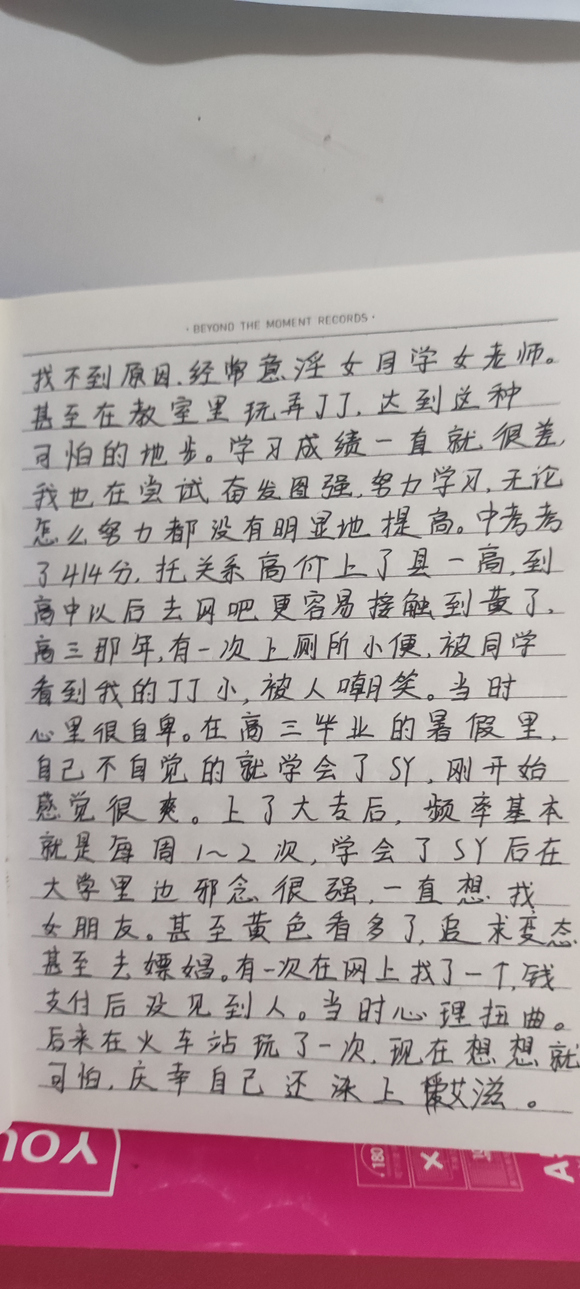 · BEYOND THE MOMENT RECORDS ·
找不到原因.经常意淫女同学女老师。
甚至在教室里玩弄JJ,达到这种
可怕的地步。学习成绩一直就很差,
我也在尝试奋发图强,努力学习,无论
怎么努力都没有明显地提高。中考考
了414分,托关系高价上了县一高,到
高中以后去网吧更容易接触到黄了,
高三那年,有一次上厕所小便,被同学
看到我的JJ小,被人嘲笑。当时
心里很自卑。在高三毕业的暑假里,
自己不自觉的就学会了SY,刚开始
感觉很爽。上了大专后,频率基本
就是每周1~2次,学会了SY后在
大学里边邪念很强,一直想找
女朋友。甚至黄色看多了,追求变态
甚至去嫖娼。有一次在网上找了一个,钱
支付后没见到人。当时心理扭曲。
后来在火车站玩了一次,现在想想就
可怕,庆幸自己还染上艾滋。
YOU
180